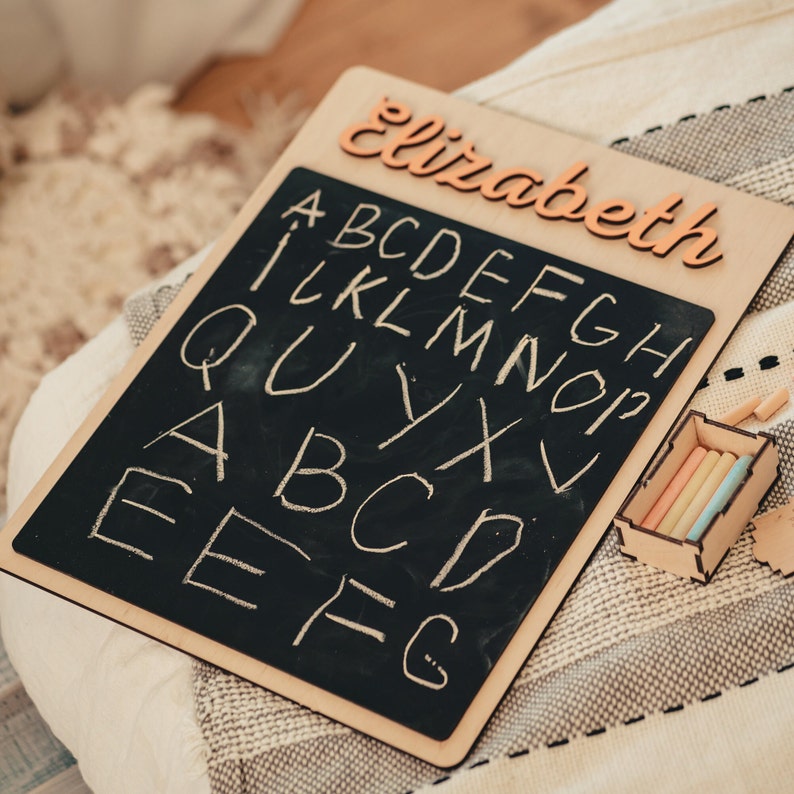 Elizabeth
A B C D E F G H
I J K L M N O P
Q U Y X V
A B C D
E E F G